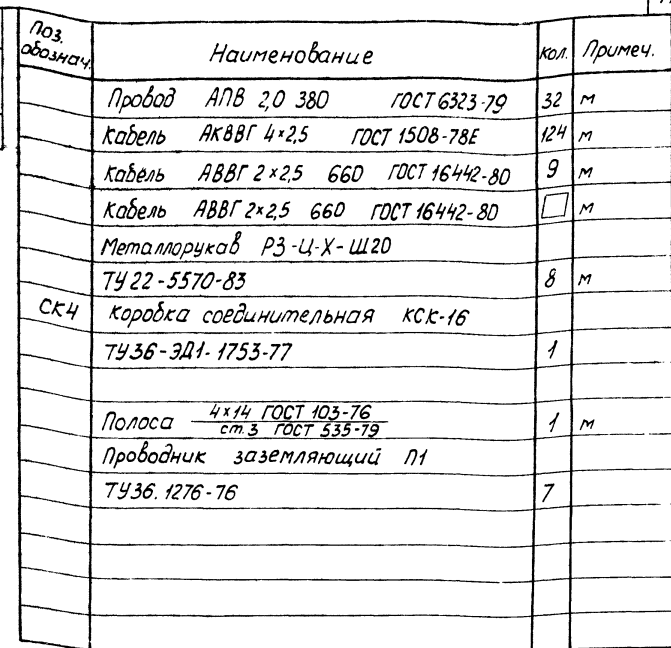 Поз. обознач. Наименование кол. Примеч.
Провод АПВ 2,0 380 ГОСТ 6323-79 32 м
Кабель АКВВГ 4×2,5 ГОСТ 1508-78Е 124 м
Кабель АВВГ 2×2,5 660 ГОСТ 16442-80 9 м
Кабель АВВГ 2×2,5 660 ГОСТ 16442-80 м
Металлорукав РЗ-Ц-Х-Ш20
ТУ 22-5570-83 8 м
СК4 коробка соединительная КСК-16
ТУ36-ЭД1-1753-77 1
Полоса 4×14 ГОСТ 103-76 1 м
ст.3 ГОСТ 535-79
Проводник заземляющий П1
ТУ36.1276-76 7